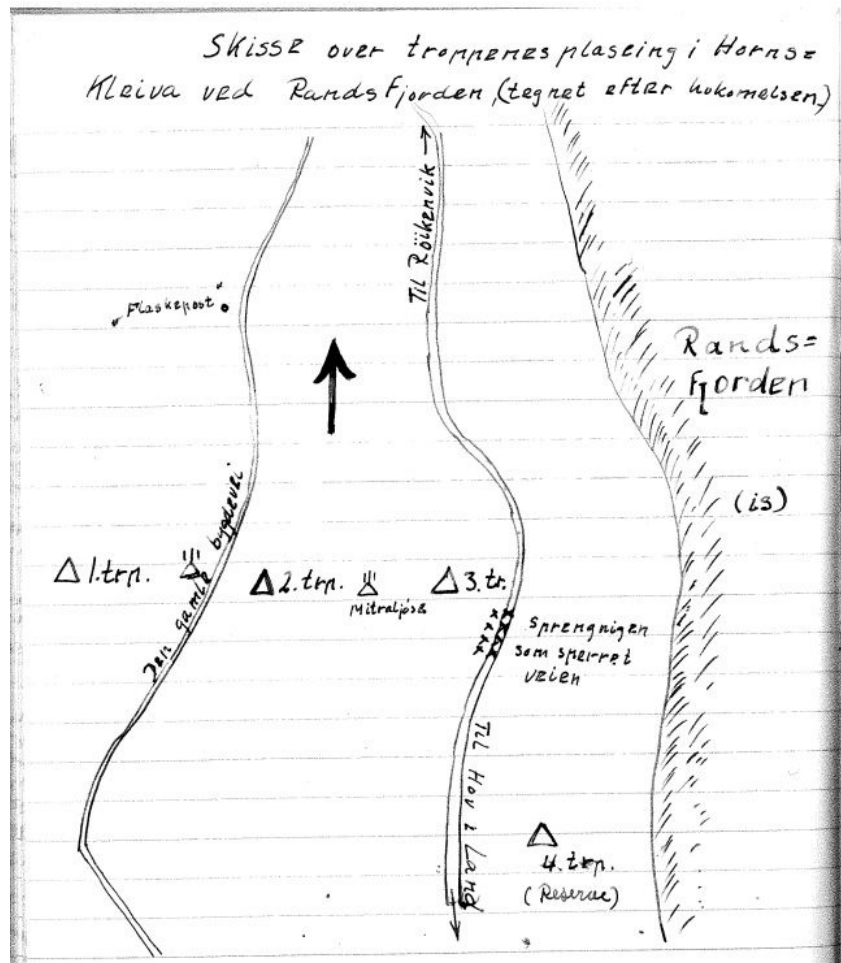 Skisse over troppenes plaseing i Horns=
Kleiva ved Randsfjorden, (tegnet efter hukomelsen.)
Til Röikenvik →
Flaskepost
Rands=
fjorden
(is)
Den gamle bygdevei
1. trp.
2. trp.
Mitraljøse
3. tr.
Sprengnigen
som sperret
veien
Til Hov i Land
4. trp.
(Reserve)